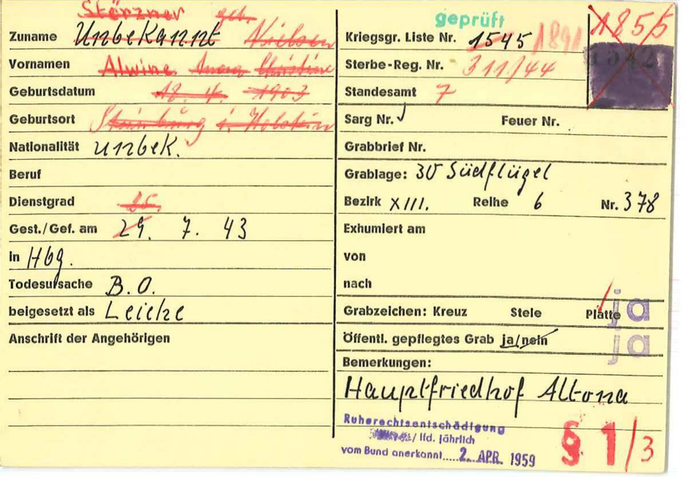 Störzner geb.
Zuname Unbekannt Nielsen
Vornamen Alwine Anna Christine
Geburtsdatum 18. 4. 1903
Geburtsort i. Holstein
Nationalität unbek.
Beruf
Dienstgrad
Gest./Gef. am 29. 7. 43
in Hbg.
Todesursache B.O.
beigesetzt als Leiche
Anschrift der Angehörigen
geprüft
Kriegsgr. Liste Nr. 1545 1891
1855
Sterbe-Reg. Nr. 311/44
Standesamt 7
Sarg Nr. Feuer Nr.
Grabbrief Nr.
Grablage: 30 Südflügel
Bezirk XIII. Reihe 6 Nr. 378
Exhumiert am
von
nach
Grabzeichen: Kreuz Stele Platte ja
Öffentl. gepflegtes Grab ja/nein ja
Bemerkungen:
Hauptfriedhof Altona
Ruherechtsentschädigung
/ lfd. jährlich
vom Bund anerkannt 2. APR. 1959
§ 1/3